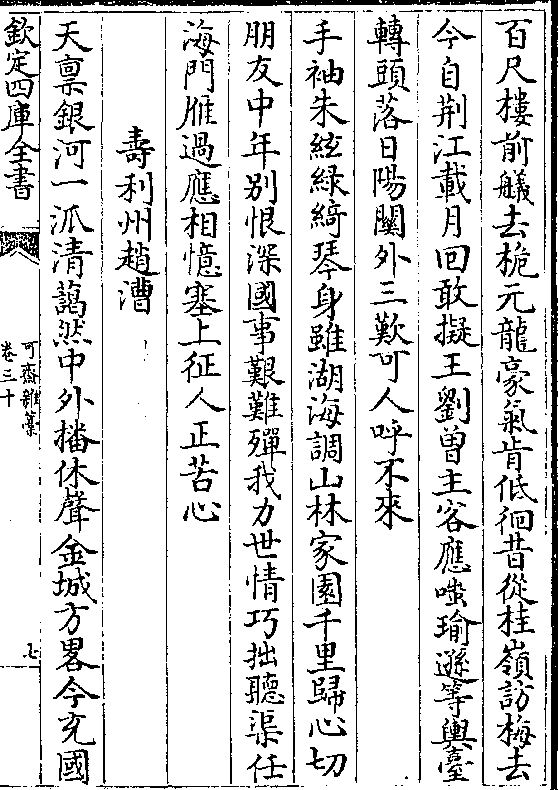 百尺樓前艤去桅元龍豪氣肯低徊昔從桂嶺訪梅去
今自荆江載月回敢擬王劉曽主客應嗤瑜遜等輿臺
轉頭落日陽關外三歎可人呼不來
手袖朱絃緑綺琴身雖湖海調山林家園千里歸心切
朋友中年别恨深國事艱難殫我力世情巧拙聽渠任
海門雁過應相憶塞上征人正苦心
壽利州趙漕
天禀銀河一派清藹然中外播休聲金城方畧今充國
欽定四庫全書
可齋雜藁
卷三十
七